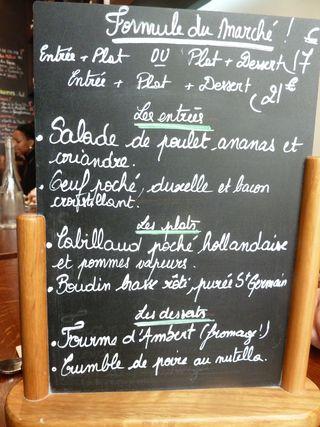 Formule du Marché !
Entrée + Plat OU Plat + Dessert 17 €
Entrée + Plat + Dessert 21 €
Les entrées
• Salade de poulet, ananas et
coriandre.
• Oeuf poché, duxelle et bacon
croustillant.
Les plats
• Cabillaud poché, hollandaise
et pommes vapeurs.
• Boudin basque rôti, purée St Germain
Les desserts
• Fourme d'Ambert (fromage!)
• Crumble de poire au nutella.